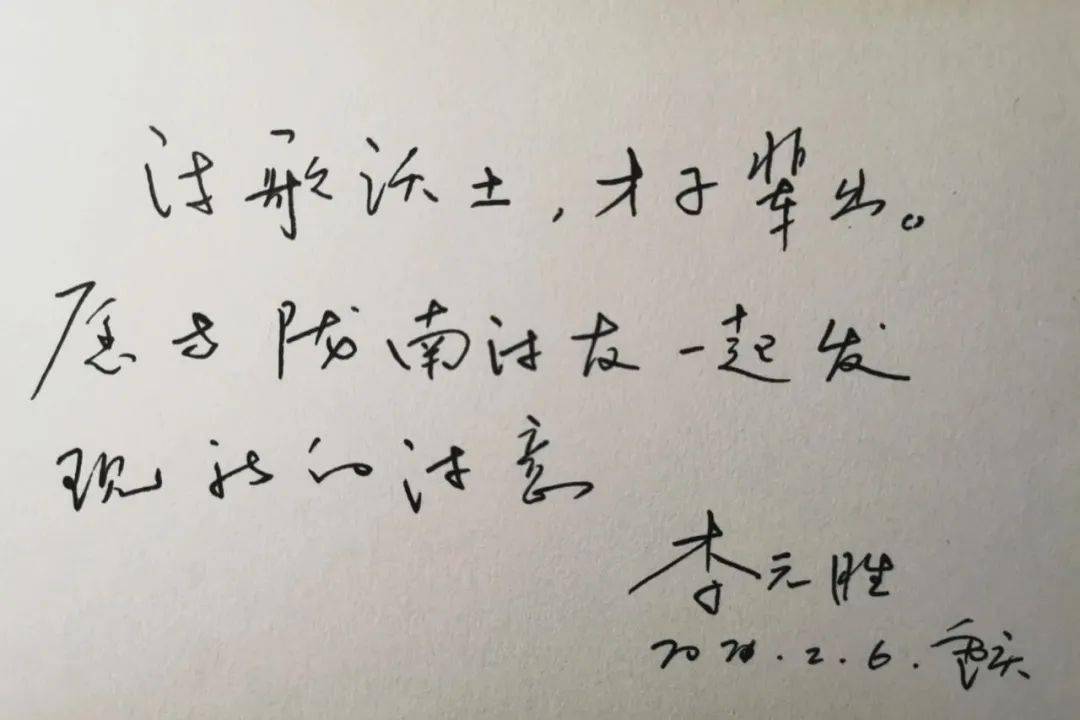 诗歌沃土，才子辈出。
愿与陇南诗友一起发
现新的诗意
李元胜
2.6.重庆